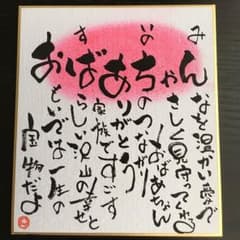 みんなを温かい愛で
やさしく見守ってくれる
おばあちゃん
いのちのつながり
ありがとう
家族ですごす
すばらしい沢山の幸せと
おもいでは一生の
宝物だよ